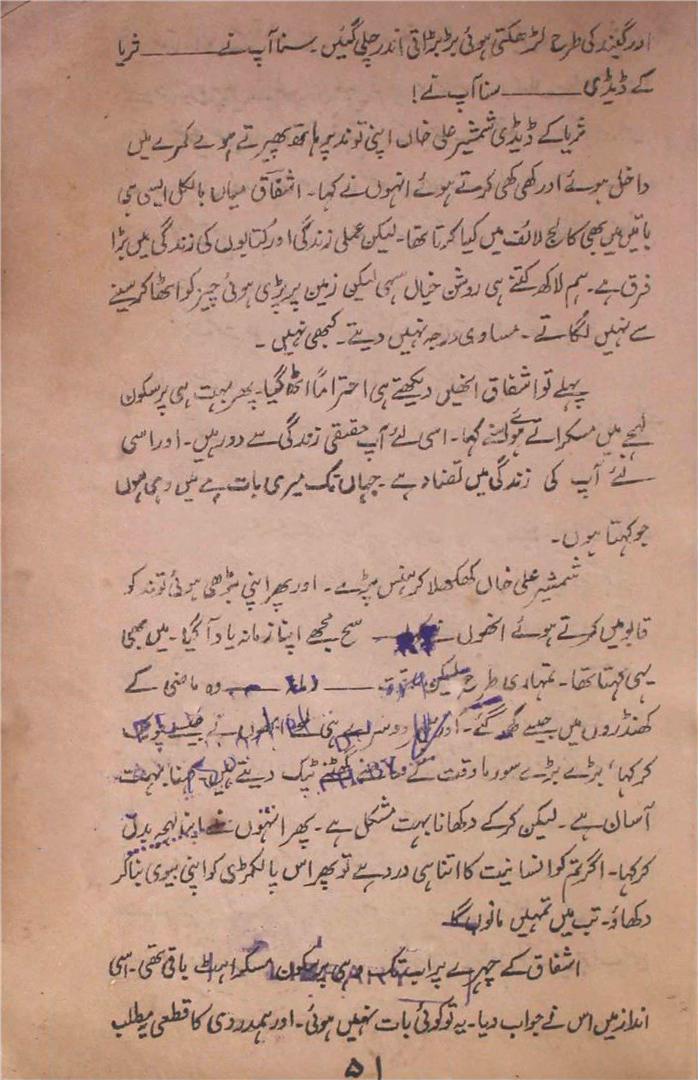 اور گیند کی طرح لڑھکتی ہوئی بڑبڑاتی اندر چلی گئیں۔ سنا آپ نے ——— ثریا
کے ڈیڈی ——— سنا آپ نے!
ثریا کے ڈیڈی شمشیر علی خاں اپنی توند پر ہاتھ پھیرتے ہوئے کمرے میں
داخل ہوئے اور کھی کھی کرتے ہوئے انہوں نے کہا۔ اشفاق میاں بالکل ایسی ہی
باتیں میں بھی کالج لائف میں کیا کرتا تھا۔ لیکن عملی زندگی اور کتابوں کی زندگی میں بڑا
فرق ہے۔ ہم لاکھ کتنے ہی روشن خیال سہی لیکن زمین پر پڑی ہوئی چیز کو اٹھا کر سینے
سے نہیں لگاتے۔ مساوی درجہ نہیں دیتے۔ کبھی نہیں۔
پہلے تو اشفاق انھیں دیکھتے ہی احتراماً اٹھ گیا۔ پھر بہت ہی پرسکون
لہجے میں مسکراتے ہوئے اسنے کہا۔ اسی لئے آپ حقیقی زندگی سے دور ہیں۔ اور اسی
لئے آپ کی زندگی میں تضاد ہے۔ جہاں تک میری بات ہے میں وہی ہوں
جو کہتا ہوں۔
شمشیر علی خاں کھکھلا کر ہنس پڑے۔ اور پھر اپنی بڑھی ہوئی توند کو
قابو میں کرتے ہوئے انھوں نے سچ مجھے اپنا زمانہ یاد آ گیا۔ میں بھی
یہی کہتا تھا۔ تمہاری طرح لیکن ——— وہ ماضی کے
کھنڈروں میں جیسے گھر گئے۔ اور دوسرے ہی انھوں نے جیسے چونک
کر کہا، بڑے بڑے سورما وقت کے گھٹنے ٹیک دیتے ہیں۔ کہنا بہت
آسان ہے۔ لیکن کرکے دکھانا بہت مشکل ہے۔ پھر انہوں نے اپنا لہجہ بدل
کر کہا۔ اگر تم کو انسانیت کا اتنا ہی درد ہے تو پھر اس پاگل لڑکی کو اپنی بیوی بنا کر
دکھاؤ۔ تب میں تمہیں مانوں گا
اشفاق کے چہرے پر اب تک وہی پرسکون مسکراہٹ باقی تھی۔ اسی
انداز میں اس نے جواب دیا۔ یہ تو کوئی بات نہیں ہوئی۔ اور ہمدردی کا قطعی یہ مطلب
۵۱